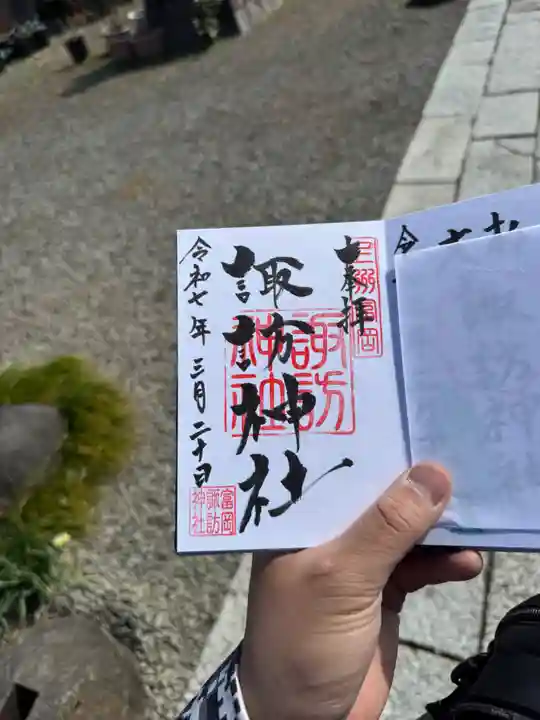 奉拝
上州富岡
諏訪神社
諏訪神社
令和七年三月二十日
富岡
諏訪
神社